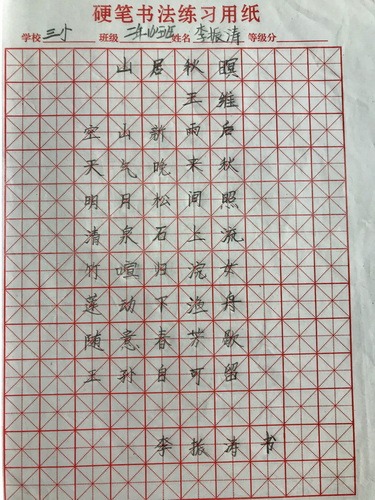 硬笔书法练习用纸
学校三小 班级 姓名李振涛 等级分
山居秋暝
王维
空山新雨后
天气晚来秋
明月松间照
清泉石上流
竹喧归浣女
莲动下渔舟
随意春芳歇
王孙自可留
李振涛书